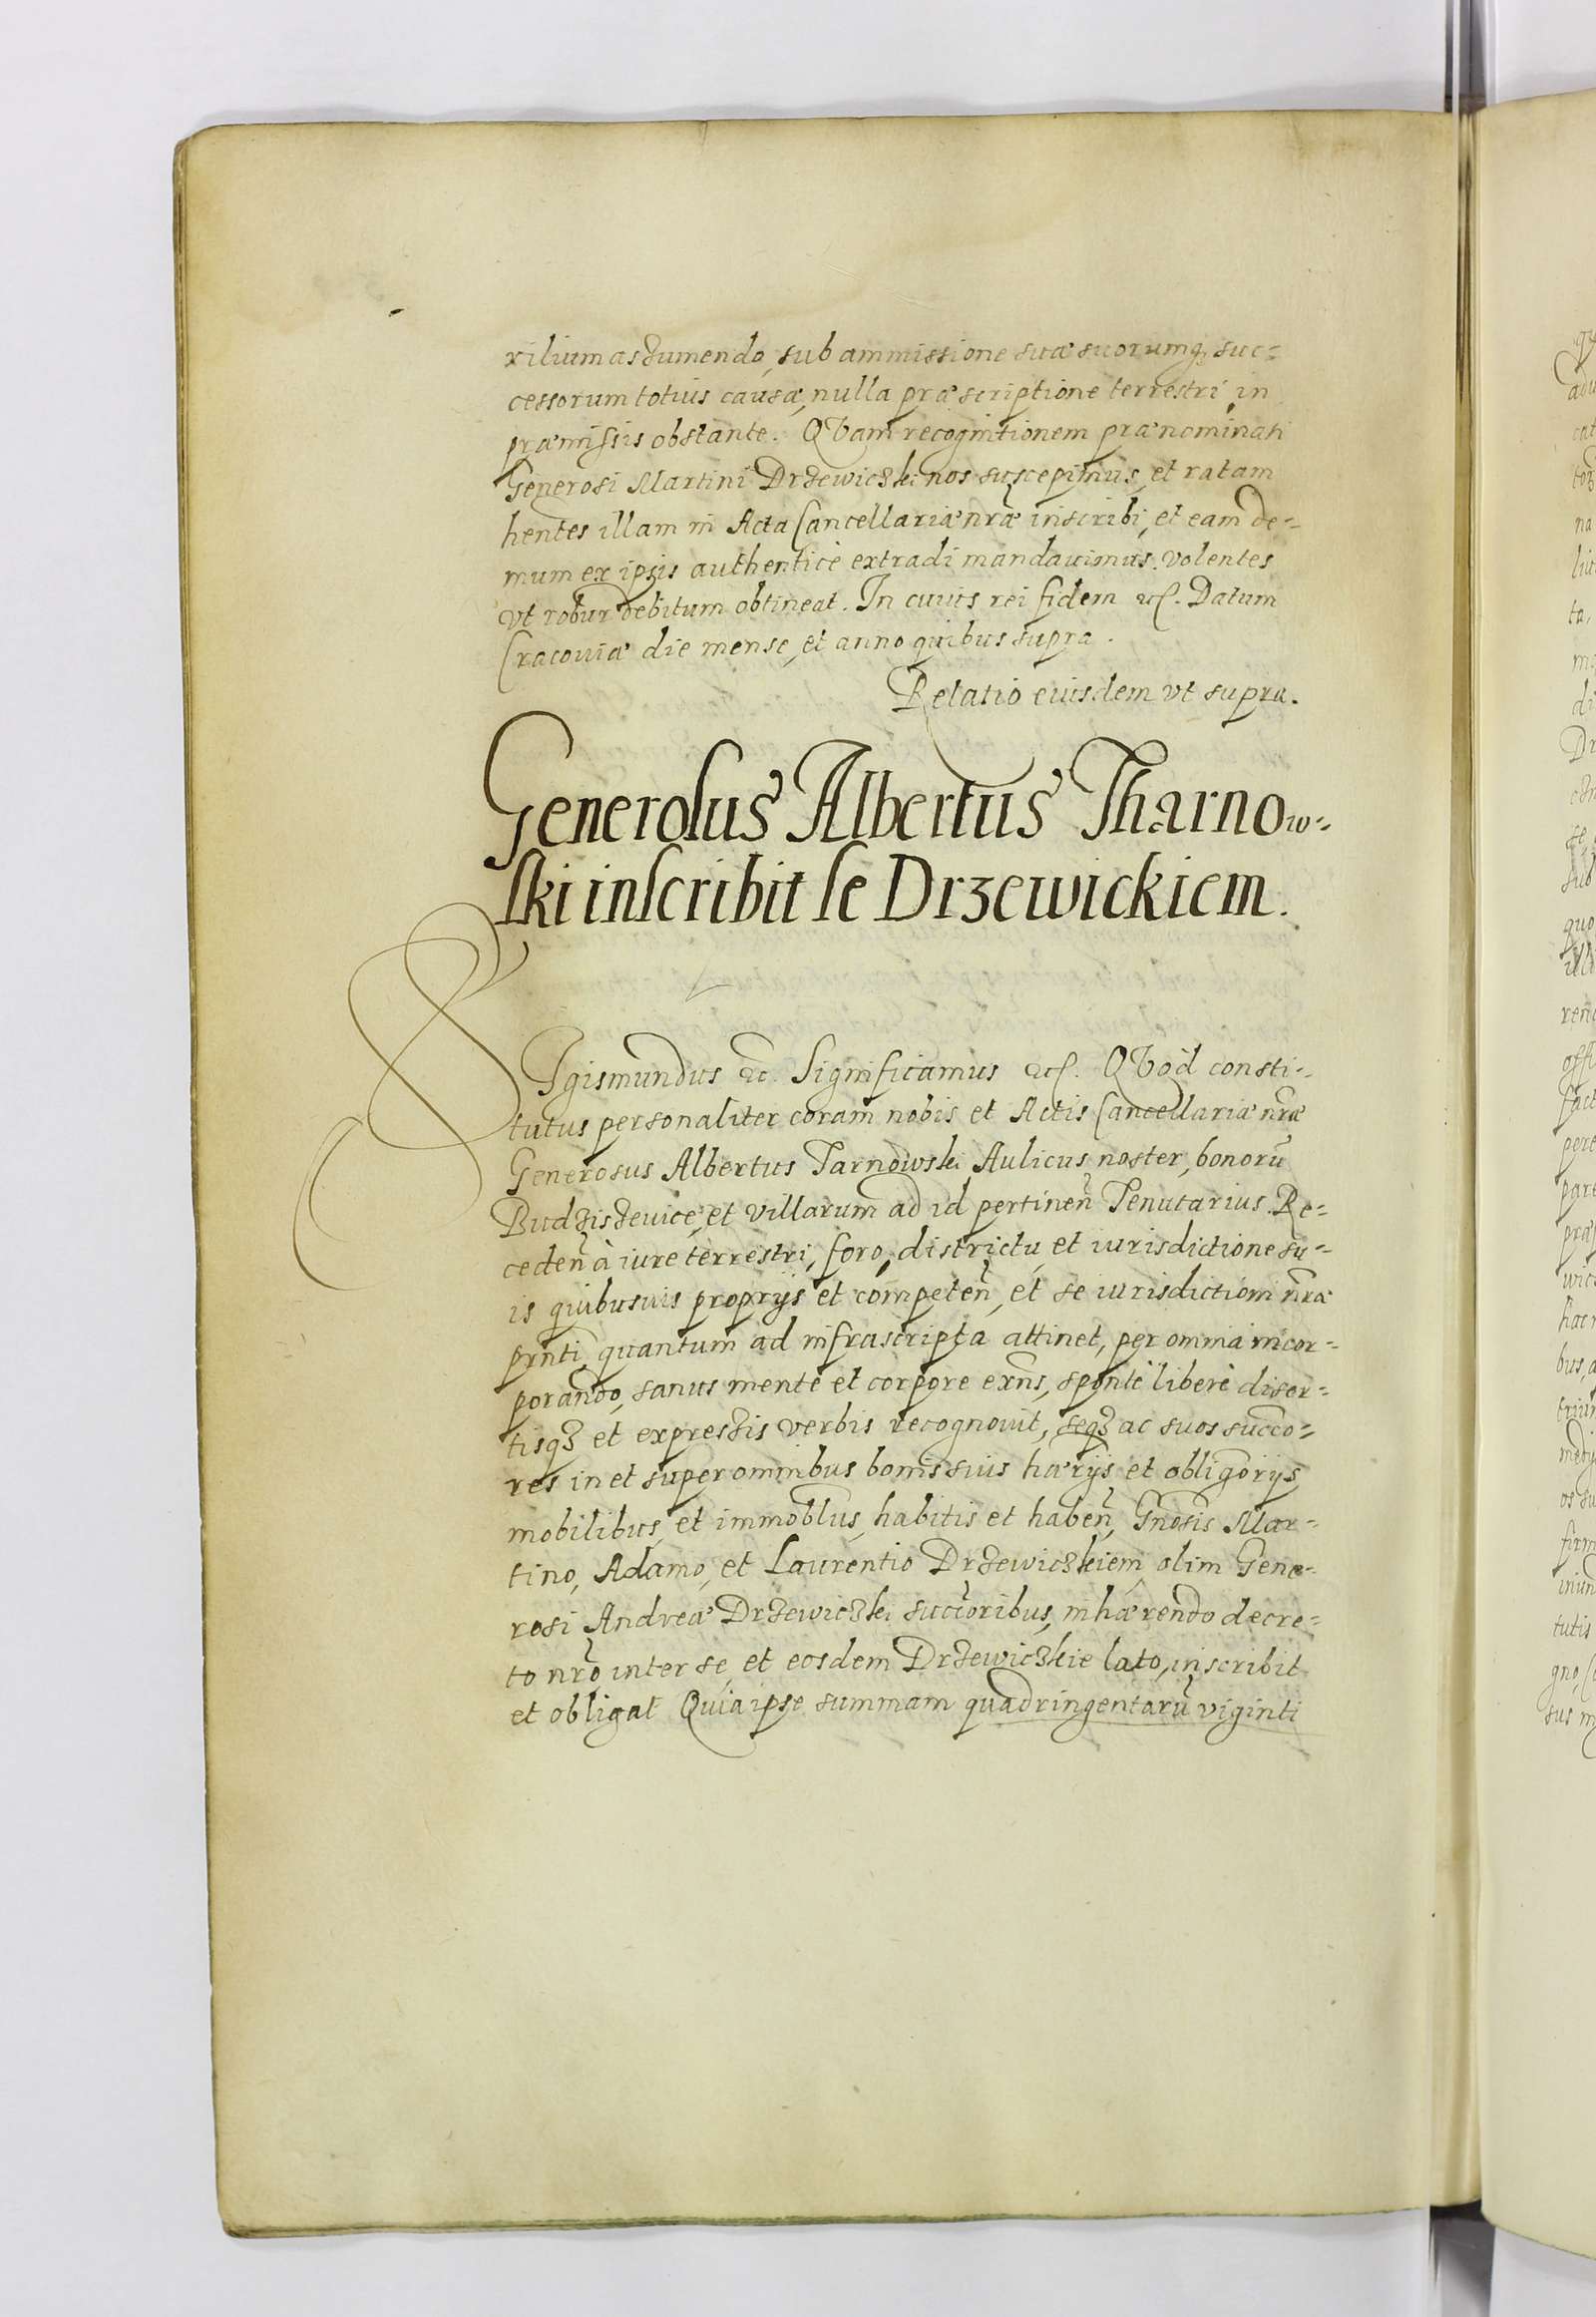 xilium assumendo, sub ammissione suæ suorumq₃ suc=
cessorum totius causæ, nulla præscriptione terrestri in
præmissis obstante. QVam recognitionem prænominati
Generosi Martini Drzewiczki nos suscepimus, et ratam
hentes illam in Acta Cancellariæ nr̃æ inscribi, et eam de=
mum ex ipsis authenticè extradi mandauimus. volentes
vt robur debitum obtineat. In cuius rei fidem etc. Datum
Cracouiæ die mense, et anno quibus supra.
Relatio eiusdem vt supra.
Generosus Albertus Tharnow=
ski inscribit se Drzewickiem.
SIgismundus etc. Significamus etc. QVod consti=
tutus personaliter coram nobis et Actis Cancellariæ nr̃æ
Generosus Albertus Tarnowski Aulicus noster, bonorũ
Budziszeuice, et villarum ad id pertineñ Tenutarius. Re=
cedeñ à iure terrestri, foro, districtu, et iurisdictione su=
is quibusuis proprijs et competeñ, et se iurisdictioni nr̃æ
pr̃nti, quantum ad infrascripta attinet, per omnia incor=
porando, sanus mente et corpore exñs, spontè liberè diser=
tisq₃ et expressis verbis recognouit, seq₃ ac suos succo=
res in et super omnibus bonis suis hærijs et obligorijs
mobilibus, et immoblus, habitis et habeñ, Gnosis Mar=
tino, Adamo, et Laurentio Drzewiczkiem, olim Gene=
rosi Andreæ Drzewiczki succoribus, inhærendo decre=
to nr̃o inter se, et eosdem Drzewiczkie lato, inscribit
et obligat Quia ipse summam quadringentarũ viginti